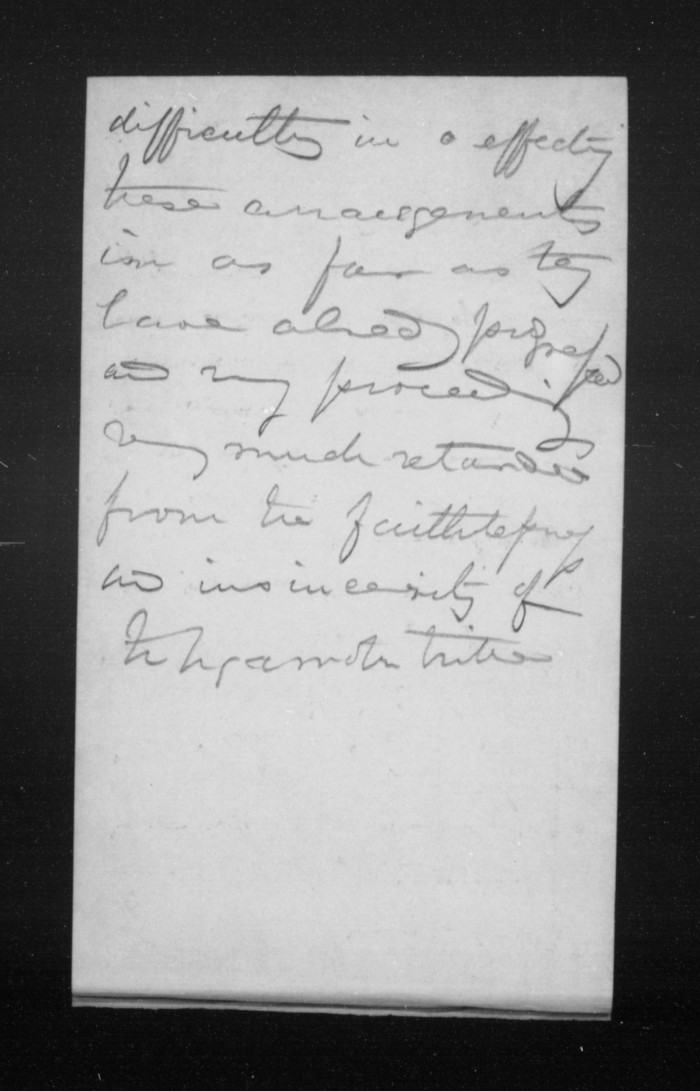 difficulty in a effecting
these arrangements
in as far as they
have already progressed
and my proceedings
very much retarded
from the faithlessness
and insincerity of
the tribe